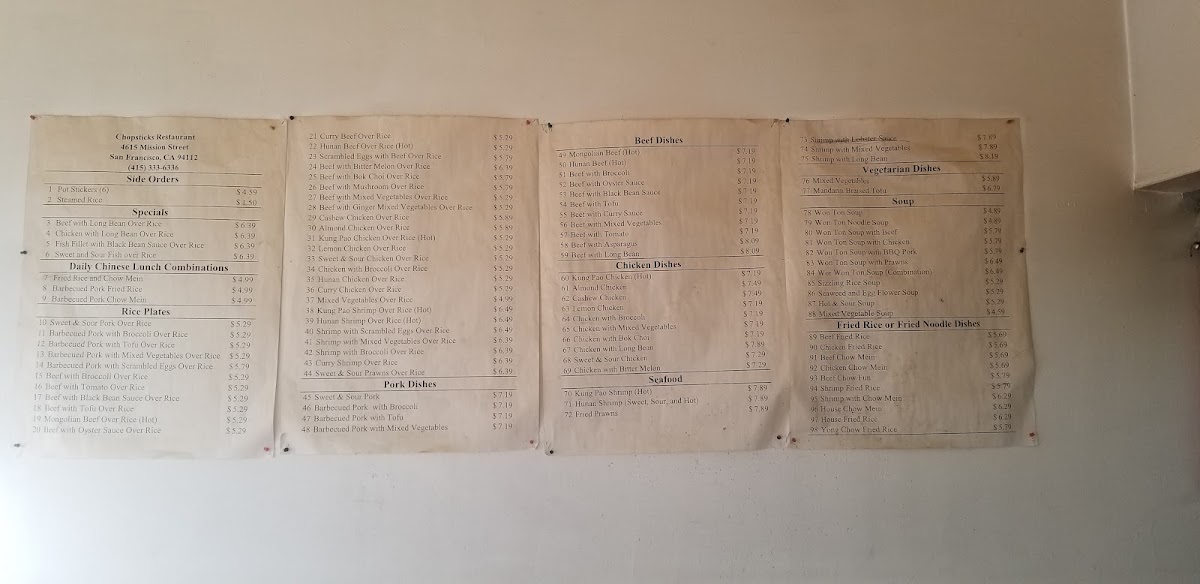 Chopsticks Restaurant
4615 Mission Street
San Francisco, CA 94112
(415) 333-6336
Side Orders
1 Pot Stickers (6) $4.59
2 Steamed Rice $4.50
Specials
3 Beef with Long Bean Over Rice $6.39
4 Chicken with Long Bean Over Rice $6.39
5 Fish Fillet with Black Bean Sauce Over Rice $6.39
6 Sweet and Sour Fish over Rice $6.39
Daily Chinese Lunch Combinations
7 Fried Rice and Chow Mein $4.99
8 Barbecued Pork Fried Rice $4.99
9 Barbecued Pork Chow Mein $4.99
Rice Plates
10 Sweet & Sour Pork Over Rice $5.29
11 Barbecued Pork with Broccoli Over Rice $5.29
12 Barbecued Pork with Tofu Over Rice $5.29
13 Barbecued Pork with Mixed Vegetables Over Rice $5.29
14 Barbecued Pork with Scrambled Eggs Over Rice $5.79
15 Beef with Broccoli Over Rice $5.29
16 Beef with Tomato Over Rice $5.29
17 Beef with Black Bean Sauce Over Rice $5.29
18 Beef with Tofu Over Rice $5.29
19 Mongolian Beef Over Rice (Hot) $5.29
20 Beef with Oyster Sauce Over Rice $5.29
21 Curry Beef Over Rice $5.29
22 Hunan Beef Over Rice (Hot) $5.29
23 Scrambled Eggs with Beef Over Rice $5.79
24 Beef with Bitter Melon Over Rice $6.39
25 Beef with Bok Choi Over Rice $5.79
26 Beef with Mushroom Over Rice $5.79
27 Beef with Mixed Vegetables Over Rice $5.29
28 Beef with Ginger Mixed Vegetables Over Rice $5.29
29 Cashew Chicken Over Rice $5.89
30 Almond Chicken Over Rice $5.89
31 Kung Pao Chicken Over Rice (Hot) $5.29
32 Lemon Chicken Over Rice $5.29
33 Sweet & Sour Chicken Over Rice $5.29
34 Chicken with Broccoli Over Rice $5.29
35 Hunan Chicken Over Rice $5.29
36 Curry Chicken Over Rice $5.29
37 Mixed Vegetables Over Rice $4.99
38 Kung Pao Shrimp Over Rice (Hot) $6.49
39 Hunan Shrimp Over Rice (Hot) $6.49
40 Shrimp with Scrambled Eggs Over Rice $6.49
41 Shrimp with Mixed Vegetables Over Rice $6.39
42 Shrimp with Broccoli Over Rice $6.39
43 Curry Shrimp Over Rice $6.39
44 Sweet & Sour Prawns Over Rice $6.39
Pork Dishes
45 Sweet & Sour Pork $7.19
46 Barbecued Pork with Broccoli $7.19
47 Barbecued Pork with Tofu $7.19
48 Barbecued Pork with Mixed Vegetables $7.19
Beef Dishes
49 Mongolian Beef (Hot) $7.19
50 Hunan Beef (Hot) $7.19
51 Beef with Broccoli $7.19
52 Beef with Oyster Sauce $7.19
53 Beef with Black Bean Sauce $7.19
54 Beef with Tofu $7.19
55 Beef with Curry Sauce $7.19
56 Beef with Mixed Vegetables $7.19
57 Beef with Tomato $7.19
58 Beef with Asparagus $8.09
59 Beef with Long Bean $8.09
Chicken Dishes
60 Kung Pao Chicken (Hot) $7.19
61 Almond Chicken $7.49
62 Cashew Chicken $7.49
63 Lemon Chicken $7.19
64 Chicken with Broccoli $7.19
65 Chicken with Mixed Vegetables $7.19
66 Chicken with Bok Choi $7.19
67 Chicken with Long Bean $7.89
68 Sweet & Sour Chicken $7.29
69 Chicken with Bitter Melon $7.29
Seafood
70 Kung Pao Shrimp (Hot) $7.89
71 Hunan Shrimp (Sweet, Sour, and Hot) $7.89
72 Fried Prawns $7.89
73 Shrimp with Lobster Sauce $7.89
74 Shrimp with Mixed Vegetables $7.89
75 Shrimp with Long Bean $8.19
Vegetarian Dishes
76 Mixed Vegetables $5.89
77 Mandarin Braised Tofu $6.79
Soup
78 Won Ton Soup $4.89
79 Won Ton Noodle Soup $4.89
80 Won Ton Soup with Beef $5.79
81 Won Ton Soup with Chicken $5.79
82 Won Ton Soup with BBQ Pork $5.79
83 Won Ton Soup with Prawns $6.49
84 Wor Won Ton Soup (Combination) $6.89
85 Sizzling Rice Soup $5.29
86 Seaweed and Egg Flower Soup $5.29
87 Hot & Sour Soup $5.29
88 Mixed Vegetable Soup $4.59
Fried Rice or Fried Noodle Dishes
89 Beef Fried Rice $5.69
90 Chicken Fried Rice $5.69
91 Beef Chow Mein $5.69
92 Chicken Chow Mein $5.69
93 Beef Chow Fun $5.79
94 Shrimp Fried Rice $5.79
95 Shrimp with Chow Mein $6.29
96 House Chow Mein $6.29
97 House Fried Rice $6.29
98 Yong Chow Fried Rice $5.79